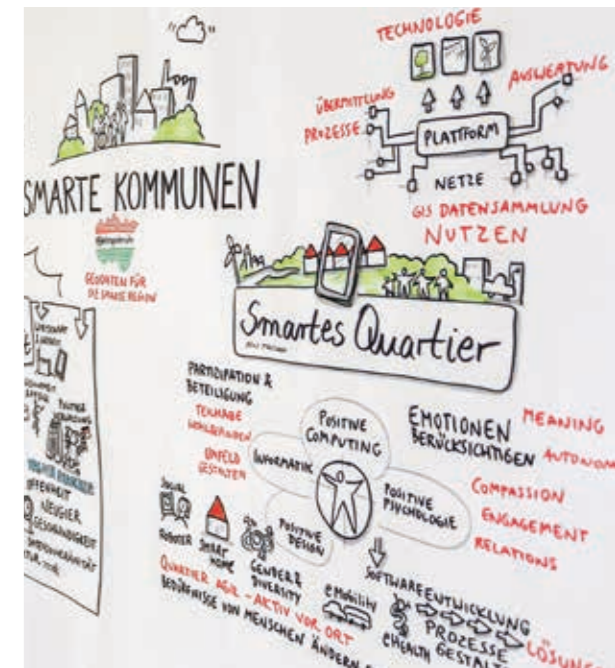 SMARTE KOMMUNEN
GEODATEN FÜR
DIE GANZE REGION
TECHNOLOGIE
ÜBERMITTLUNG
PROZESSE
AUSWERTUNG
PLATTFORM
NETZE
GIS DATENSAMMLUNG
NUTZEN
Smartes Quartier
PARTIZIPATION &
BETEILIGUNG
TEILHABE
WOHLBEFINDEN
UMFELD
GESTALTEN
POSITIVE
COMPUTING
INFORMATIK
POSITIVE
PSYCHOLOGIE
POSITIVE
DESIGN
EMOTIONEN
BERÜCKSICHTIGEN
MEANING
AUTONOM
COMPASSION
ENGAGEMENT
RELATIONS
SOCIAL
ROBOTER
SMART
HOME
GENDER &
DIVERSITY
eMobility
eHEALTH
SOFTWAREENTWICKLUNG
PROZESSE
GESTALT
LÖSUNG
QUARTIER AGIL - AKTIV VOR ORT
BEDÜRFNISSE VON MENSCHEN ÄNDERN
OFFENHEIT
NEUGIER